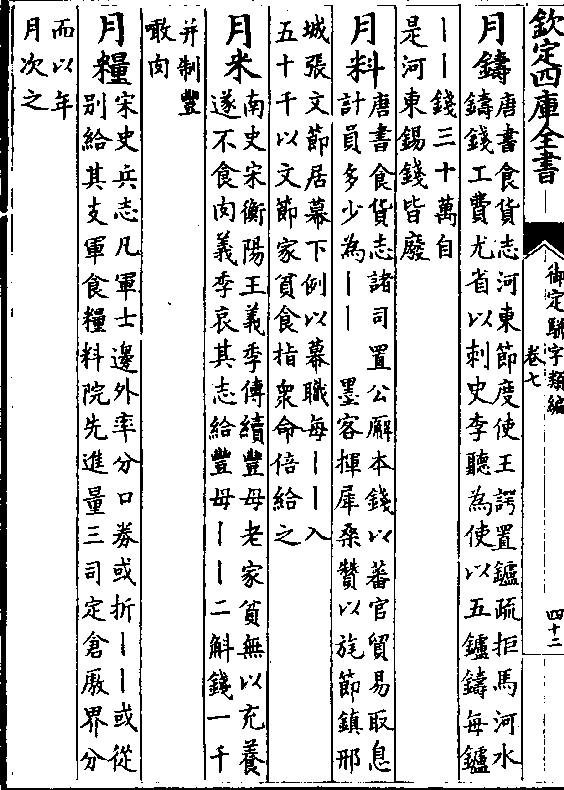 欽定四庫全書
御定騈字類編
卷七
四十二
月鑄
唐書食貨志河東節度使王諤置鑪疏拒馬河水
鑄錢工費尤省以刺史李聽為使以五鑪鑄每鑪
丨丨錢三十萬自
是河東錫錢皆廢
月料
唐書食貨志諸司置公廨本錢以蕃官貿易取息
計員多少為丨丨 墨客揮犀桑贊以旄節鎮邢
城張文節居幕下例以幕職每丨丨入
五十千以文節家貧食指衆命倍給之
月米
南史宋衡陽王義季傳續豐母老家貧無以充養
遂不食肉義季哀其志給豐母丨丨二斛錢一千
并制豐
噉肉
月糧
宋史兵志凡軍士邊外率分口券或折丨丨或從
別給其支軍食糧料院先進量三司定倉廒界分
而以年
月次之